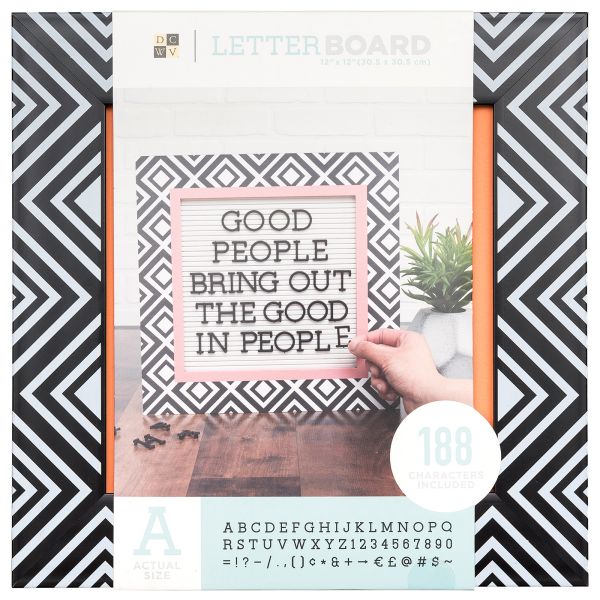 DC
WV
LETTERBOARD
12" x 12" (30.5 x 30.5 cm)
GOOD
PEOPLE
BRING OUT
THE GOOD
IN PEOPLE
188
CHARACTERS
INCLUDED
A
ACTUAL
SIZE
ABCDEFGHIJKLMNOPQ
RSTUVWXYZ1234567890
=!?-/.,()¢*&+→€£@#$~